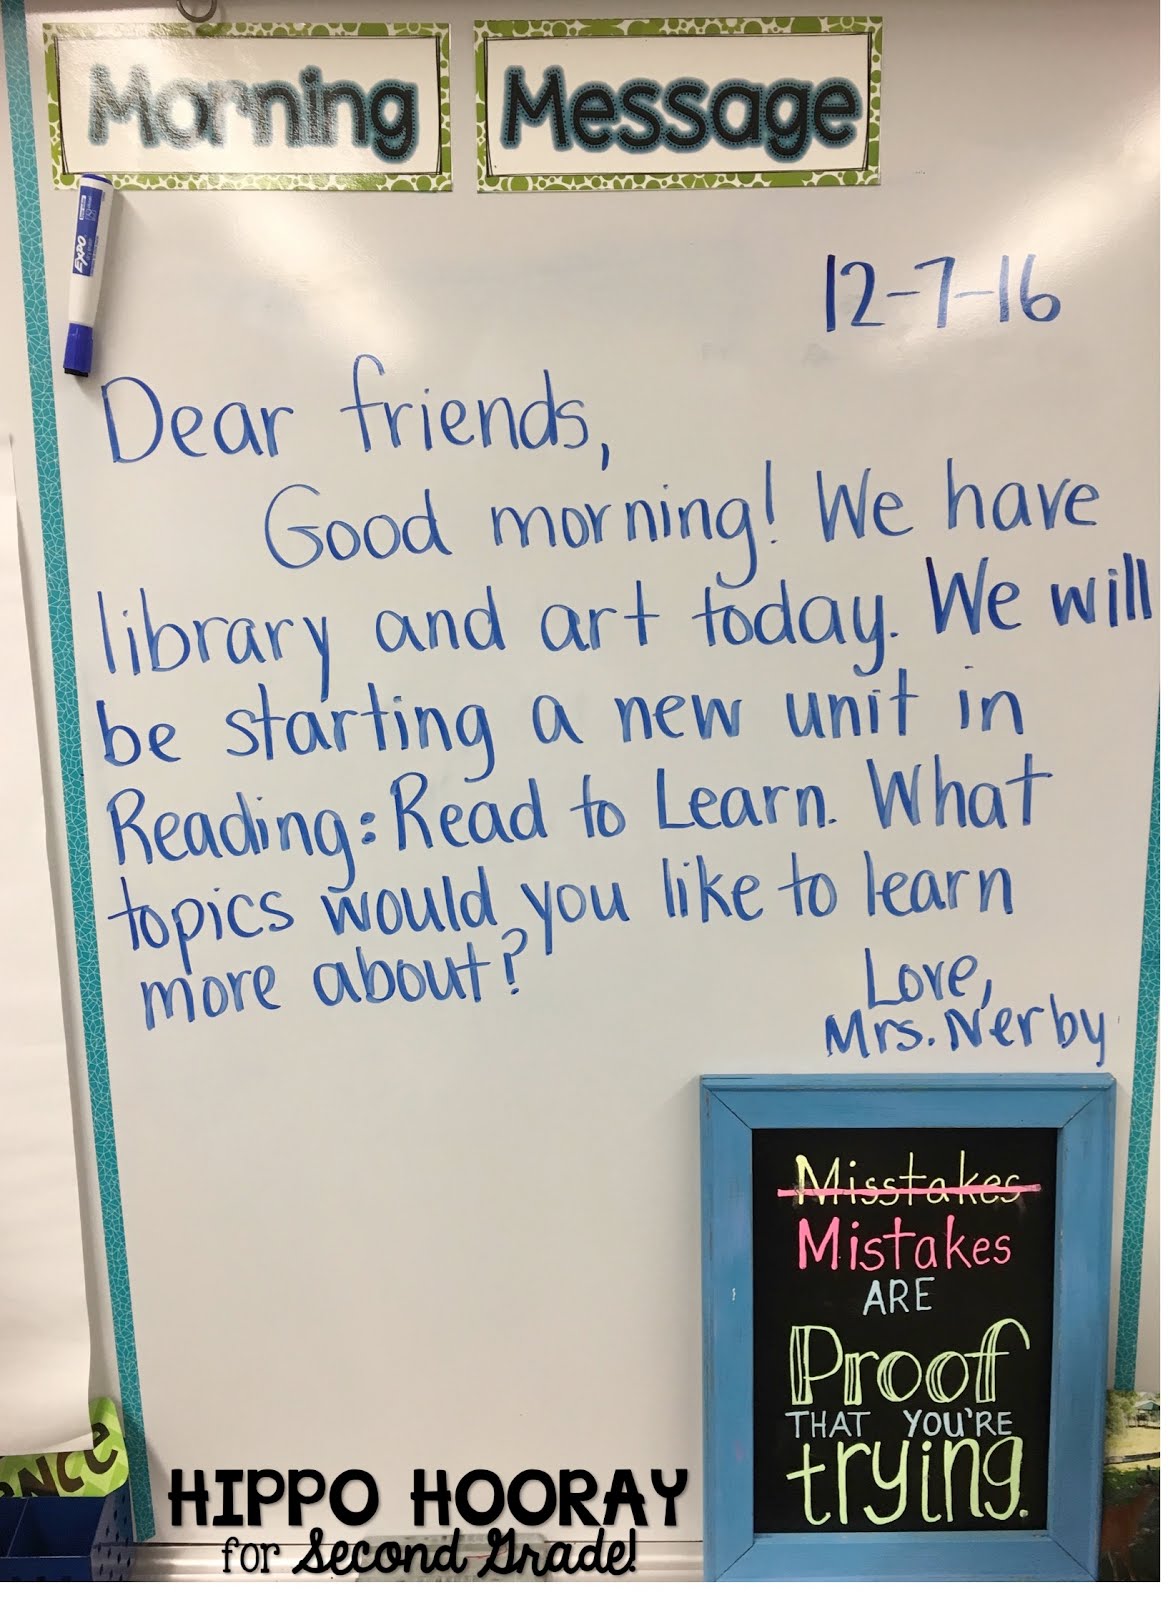 Morning Message
EXPO
12-7-16
Dear friends,
Good morning! We have
library and art today. We will
be starting a new unit in
Reading: Read to Learn. What
topics would you like to learn
more about?
Love,
Mrs. Nerby
Misstakes
Mistakes
ARE
Proof
THAT YOU'RE
trying.
HIPPO HOORAY
for Second Grade!